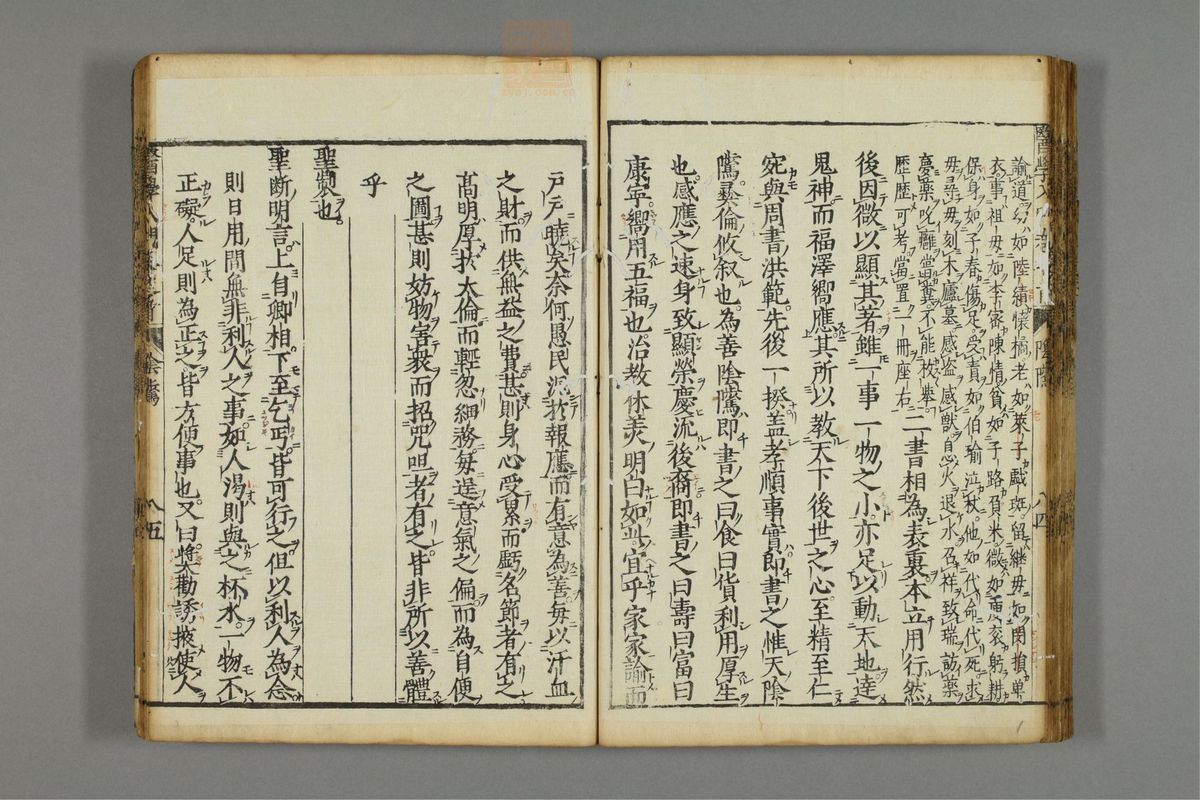 諭道幼如陸績懷橘老如萊子戲斑留繼母如閔損單
衣事祖母如李密陳情貧如子路負米微如黃香躬耕
保身如子春傷足受責如伯瑜泣杖他如代命代死求
母尋母刻木廬墓感盜感獸自息火退水召祥致瑞訪藥
夢藥吮癰嘗糞不能枚舉
歷歷可考當置一冊座右二書相為表裏本立用行然
後因微以顯其著雖一事一物之小亦足以動天地達
鬼神而福澤嚮應其所以教天下後世之心至精至仁
宛與周書洪範先後一揆蓋孝順事實即書之惟天陰
隲彝倫攸叙也為善陰隲即書之曰食曰貨利用厚生
也感應之速身致顯榮慶流後裔即書之曰壽曰富曰
康寧嚮用五福也治教休美明白如此宜乎家家諭而
戶戶曉矣奈何愚民泥於報應而有意為善每以汗血
之財而供無益之費甚則身心受累而虧名節者有之
高明厚於大倫而輕忽細務每逞意氣之偏而為自便
之圖甚則妨物害衆而招咒咀者有之皆非所以善體
聖製也
乎
聖斷明言上自卿相下至乞丐皆可行之但以利人為念
則日用間無非利人之事如人渴則與之杯水一物不
正礙人足則為正之皆方便事也又曰將勸誘掖使人
陰隲
八四
陰隲
八五